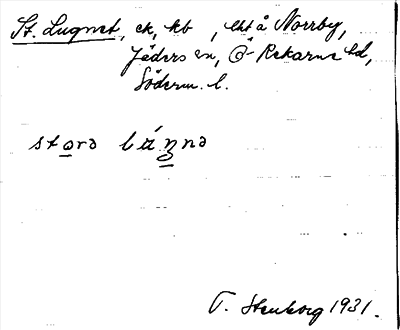 St. Lugnet, ek, kb, lht å Norrby,
Jäders sn, Ö-Rekarne hd,
Söderm. l.
storə
T. Stenborg 1931.